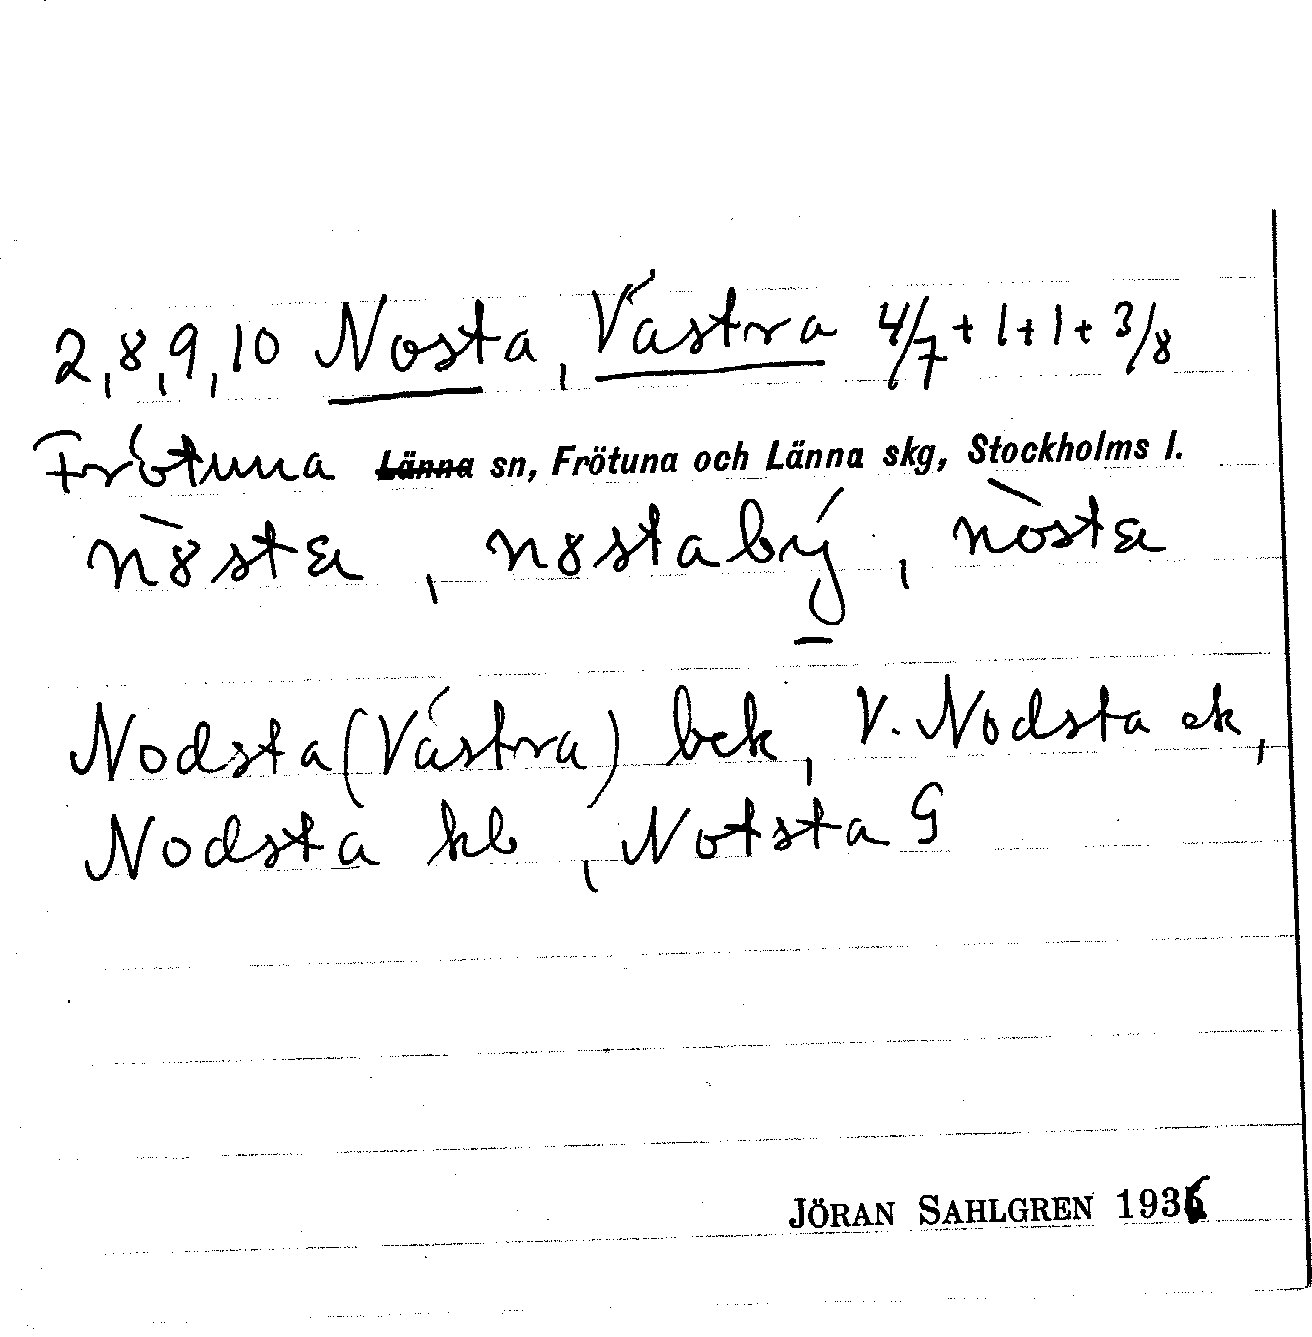 2,8,9,10 Nosta, Västra 4/7 + 1+1+ 3/8
Frötuna ~~Länna~~ sn, Frötuna och Länna skg, Stockholms l.
n8̀sta, n8stabý, nòsta
Nodsta (Västra) bek, V. Nodsta ek,
Nodsta kb, Notsta G
JÖRAN SAHLGREN 1936